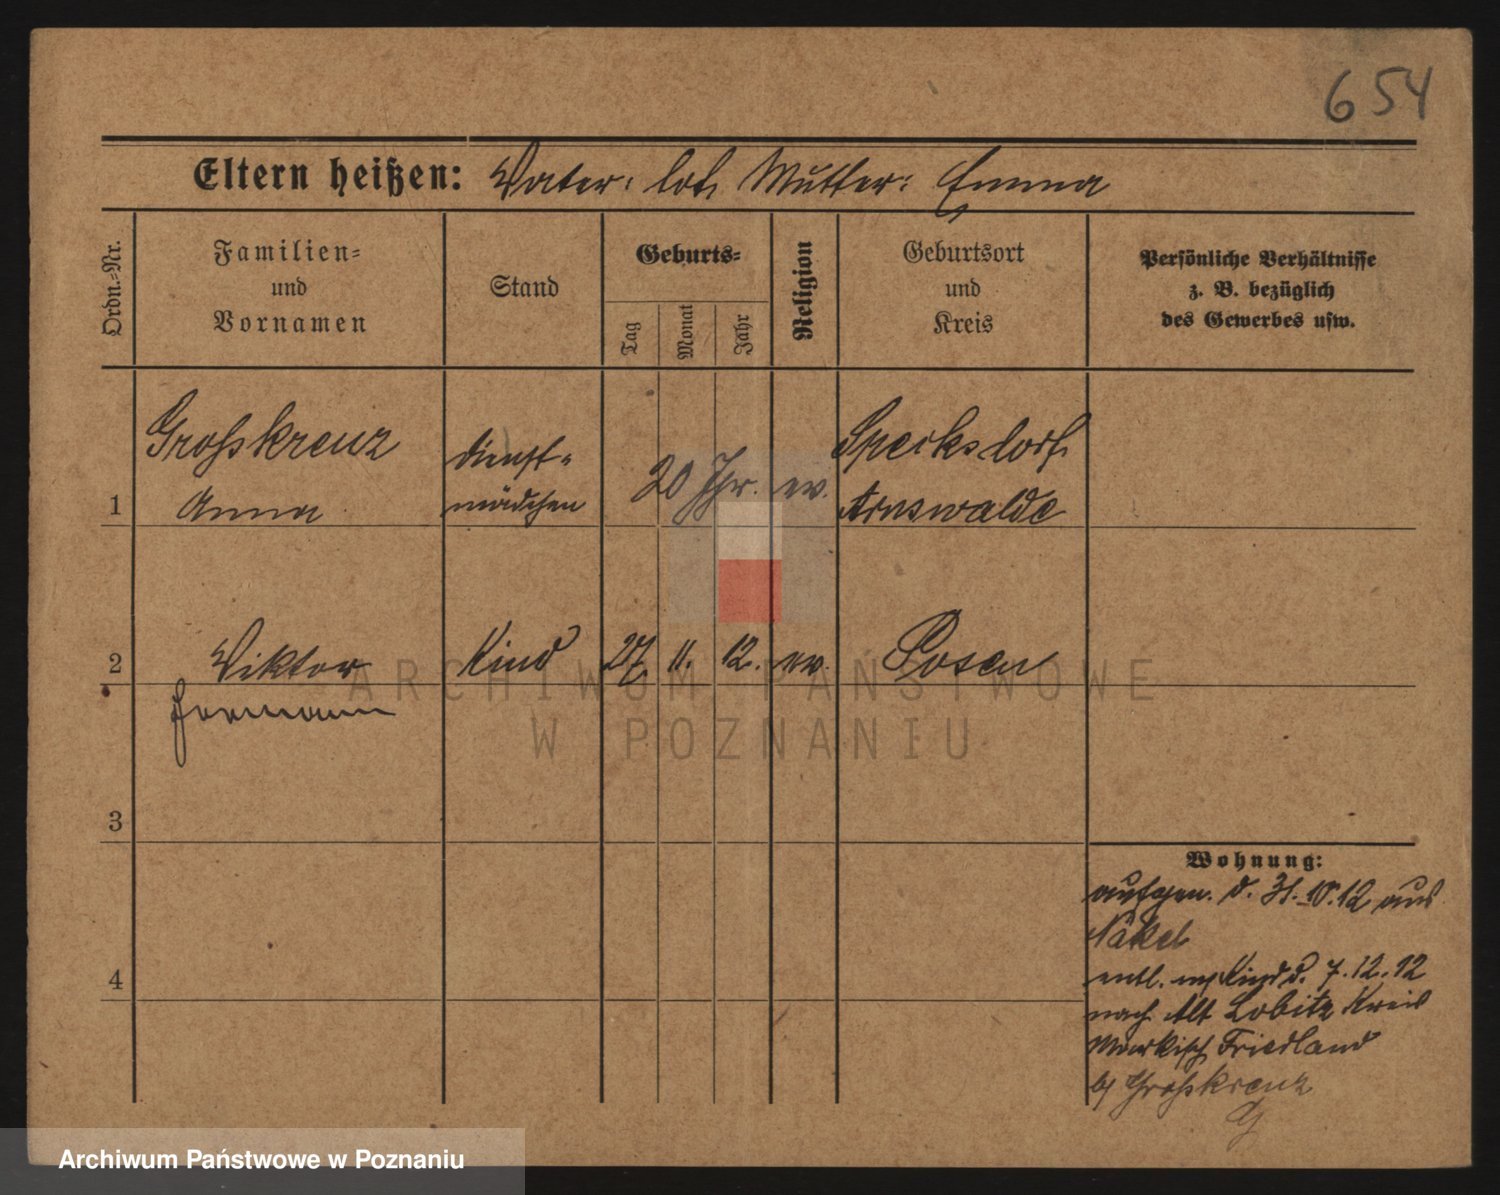 654
Eltern heißen: Vater: tot, Mutter: Emma
Ordn.-Nr.
Familien=
und
Vornamen
Stand
Geburts=
Tag
Monat
Jahr
Religion
Geburtsort
und
Kreis
Persönliche Verhältnisse
z. B. bezüglich
des Gewerbes usw.
1
Großkreuz
Anna
Dienst-
mädchen
20 Jhr.
ev.
Specksdorf,
Arnswalde
2
Viktor
Hermann
Kind
27
11.
12.
ev.
Posen
3
4
Wohnung:
aufgen. d. 31.10.12 aus
Nakel
entl. m/Kind d. 7.12.12
nach Alt Lobitz Kreis
Märkisch Friedland
b/ Großkreuz
ARCHIWUM PAŃSTWOWE
W POZNANIU
Archiwum Państwowe w Poznaniu